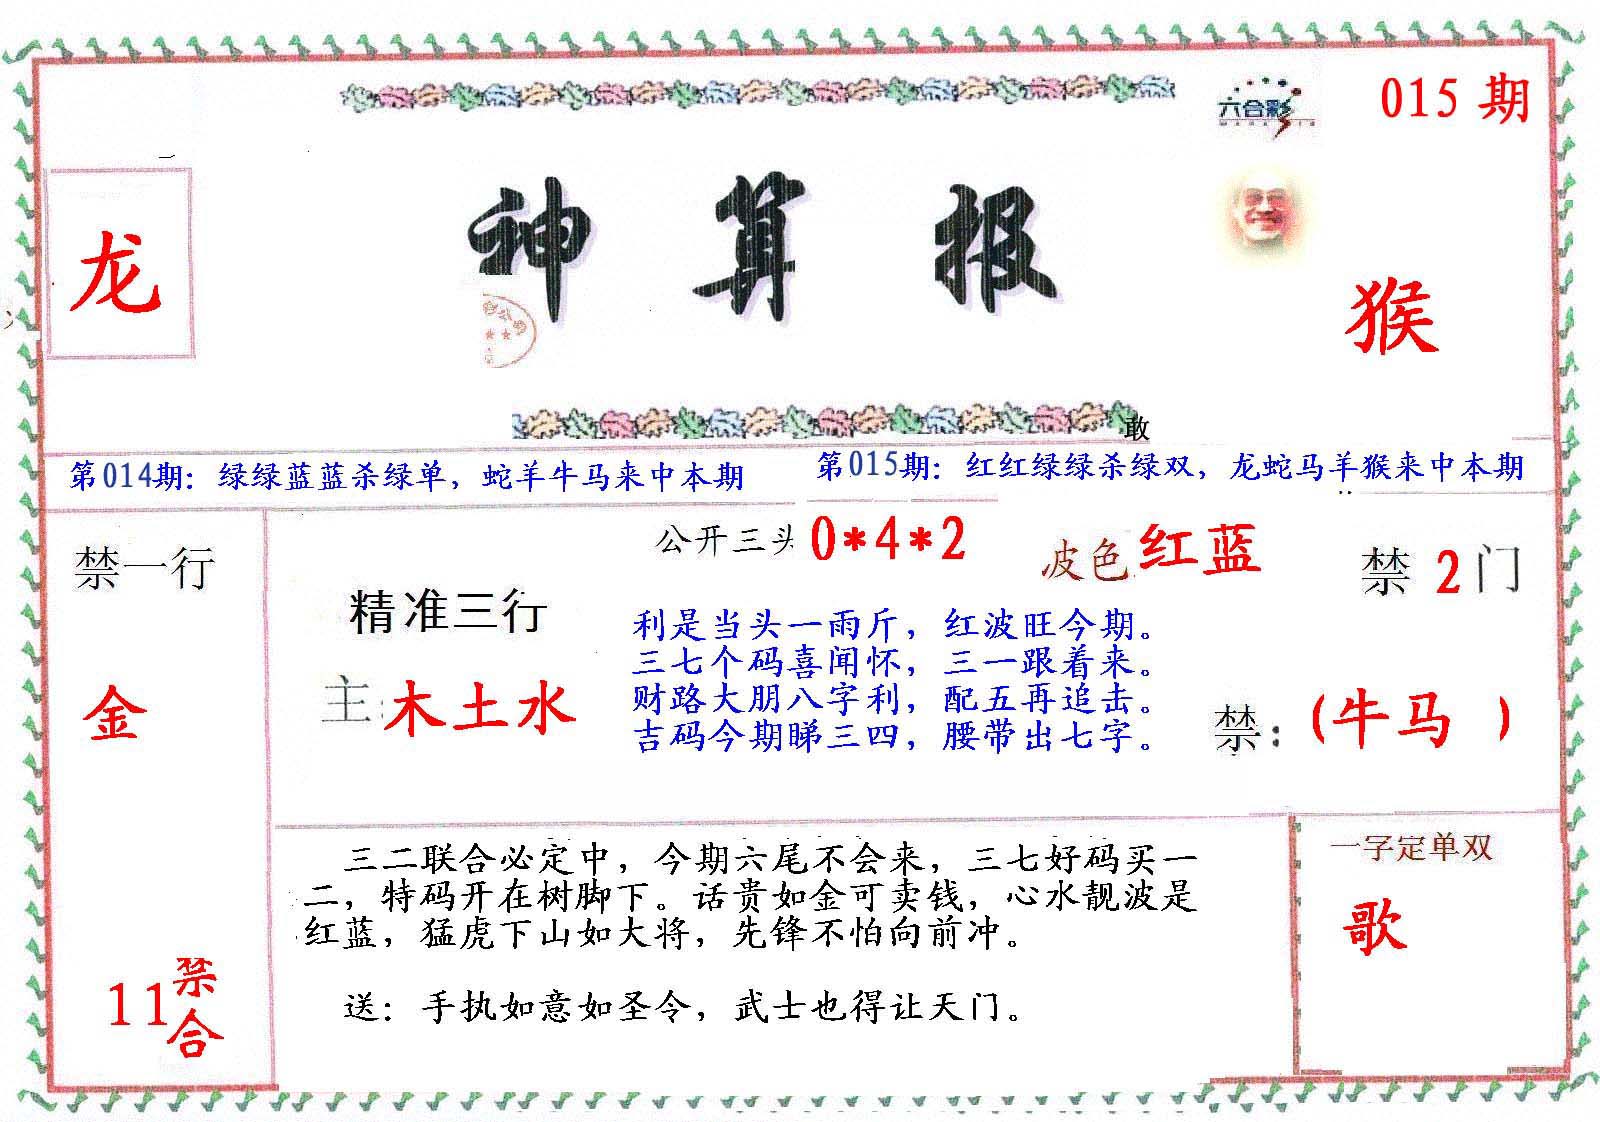 六合彩
015 期
神算报
龙
猴
敢
第014期：绿绿蓝蓝杀绿单，蛇羊牛马来中本期
第015期：红红绿绿杀绿双，龙蛇马羊猴来中本期
禁一行
金
11禁合
精准三行
主:木土水
公开三头 0*4*2
波色 红蓝
禁 2 门
利是当头一雨斤，红波旺今期。
三七个码喜闻怀，三一跟着来。
财路大朋八字利，配五再追击。
吉码今期睇三四，腰带出七字。
禁：(牛马 )
三二联合必定中，今期六尾不会来，三七好码买一
二，特码开在树脚下。话贵如金可卖钱，心水靓波是
红蓝，猛虎下山如大将，先锋不怕向前冲。
送：手执如意如圣令，武士也得让天门。
一字定单双
歌